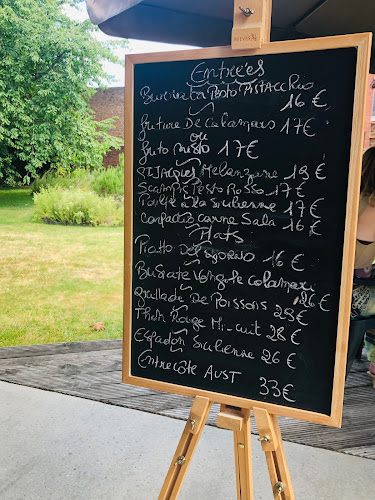 Entrées
Burrata Pesto Pistacchio 16 €
friture De Calamars 17€
ou
frito misto 17€
St Jacques Melanzane 19 €
Scampis Pesto Rosso 17€
Poulpe à la Sicilienne 17€
Carpaccio carne Sala 16€
Plats
Piatto Del Giorno 16 €
Busiate Vongole Calamari 26€
Grillade De Poissons 29€
Thon Rouge Mi-cuit 28 €
Espadon Sicilienne 26 €
Entrecôte Aust 33€